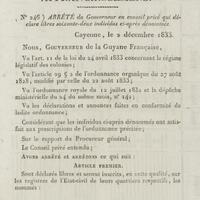 N° 246) ARRÊTÉ du Gouverneur en conseil privé qui déclare libres soixante-deux individus ci-après dénommés.
Cayenne, le 2 décembre 1833.
Nous, Gouverneur de la Guyane Française,
Vu l'art. 11 de la loi du 24 avril 1833 concernant le régime
législatif des colonies;
Vu l'article 99 § 2 de l'ordonnance organique du 27 août
1828, modifié par celle du 22 août 1833;
Vu l'ordonnance royale du 12 juillet 1832 et la dépêche
ministérielle du 24 du même mois, n°
Vu les déclarations et annonces qui ont été faites suivant
ladite ordonnance;
Considérant que les individus ci-après dénommés ont satisfait aux prescriptions de l'ordonnance précitée;
Sur le rapport du Procureur général;
Le Conseil privé entendu;
Avons arrêté et arrêtons ce qui suit:
Article premier.
Sont déclarés libres et seront inscrits, en cette qualité, sur
les registres de l'État-civil de leurs quartiers respectifs, les
nommés: